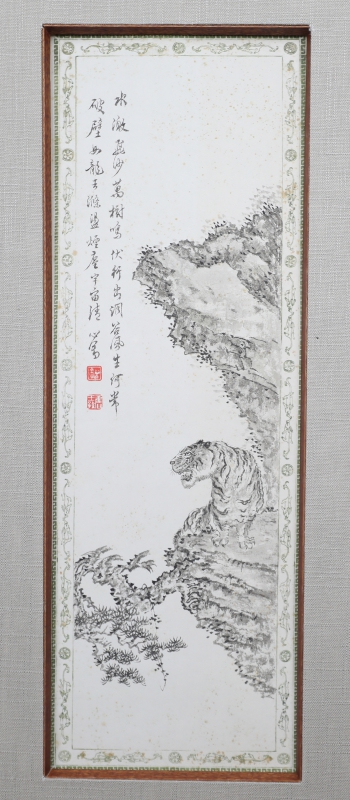 水激飛沙萬樹鳴伏行出澗谷風生何當
破壁如龍去滌盪煙塵宇宙清 心畬